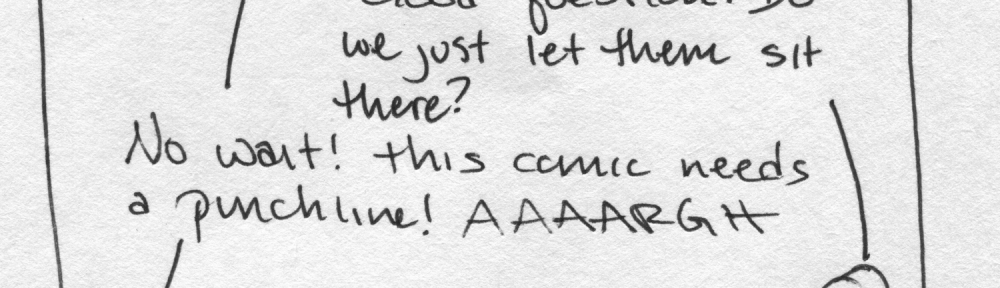 Good question! Do
we just let them sit
there?
No wait! this comic needs
a punchline! AAAARGH